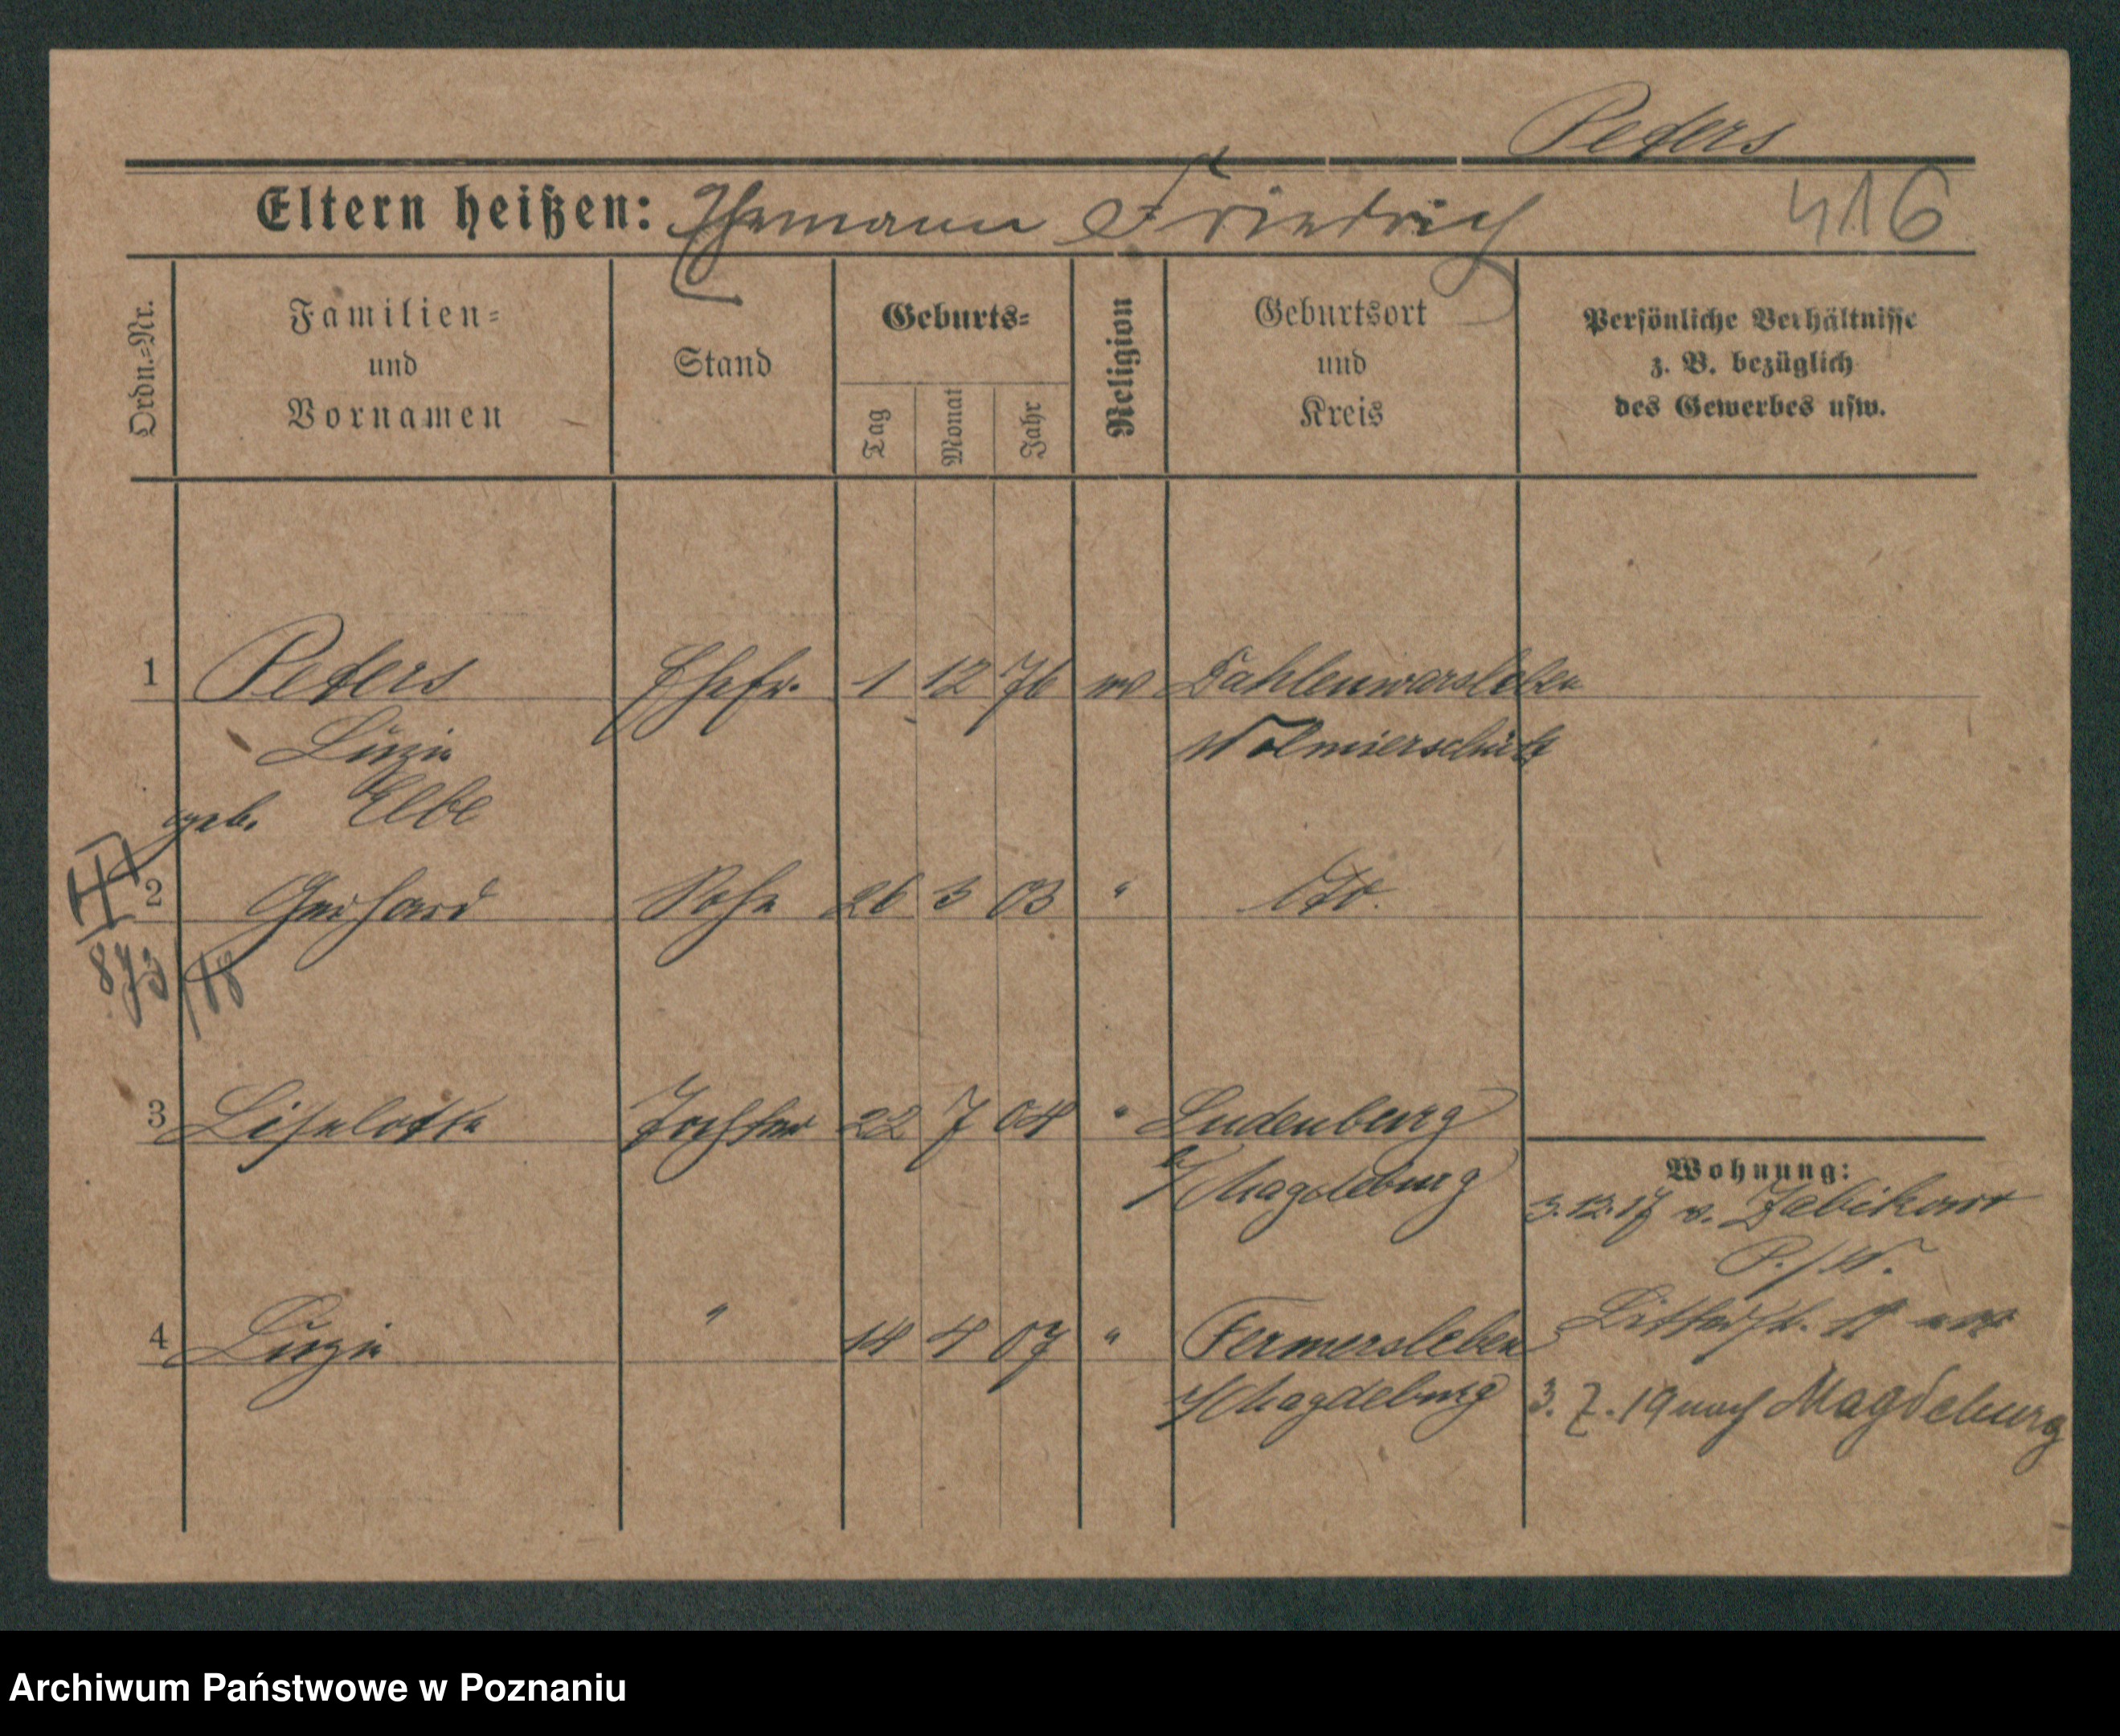 Peters
Eltern heißen: Ehemann Friedrich 416
Ordn.=Nr.
Familien=
und
Vornamen
Stand
Geburts=
Tag
Monat
Jahr
Religion
Geburtsort
und
Kreis
Persönliche Verhältnisse
z. B. bezüglich
des Gewerbes usw.
1 Peters Ehefr. 1 12 76 ev Dahlenwarsleben
Luzie Wolmierschütz
geb. Elbe
2 Gerhard Sohn 26 3 03 " dto.
873/18
3 Liselotte Tochter 22 7 04 " Sudenburg
b/Magdeburg
Wohnung:
3.12.17 v. Zabikowo
P./W.
4 Luzie " 14 4 07 " Fermersleben
b/Magdeburg
3. 7. 19 nach Magdeburg
Archiwum Państwowe w Poznaniu